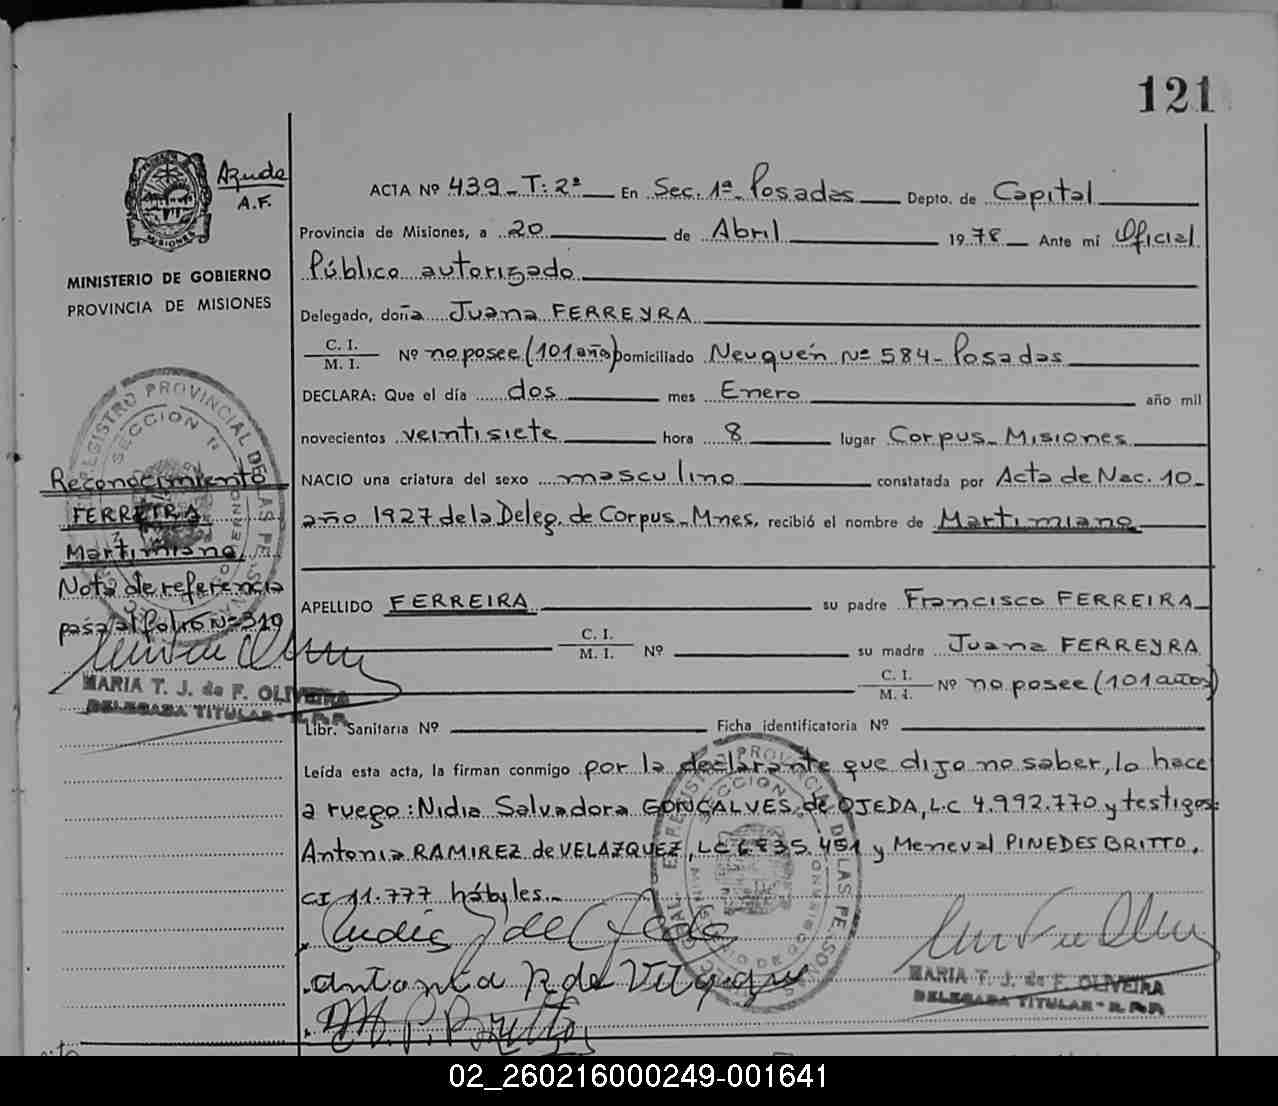 121
Ayuda
A.F.
MINISTERIO DE GOBIERNO
PROVINCIA DE MISIONES
ACTA Nº 439 - T: 2º En Sec. 1ª - Posadas Depto. de Capital
Provincia de Misiones, a 20 de Abril 1978 Ante mí Oficial
Público autorizado
Delegado, doña Juana FERREYRA
C. I.
M. I. Nº no posee (101 años) Domiciliado Neuquén Nº 584 - Posadas
DECLARA: Que el día dos mes Enero año mil
novecientos veintisiete hora 8 lugar Corpus - Misiones
NACIO una criatura del sexo masculino constatada por Acta de Nac. 10 -
año 1927 de la Deleg. de Corpus - Mnes, recibió el nombre de Martimiano
APELLIDO FERREIRA su padre Francisco FERREIRA
C. I.
M. I. Nº su madre Juana FERREYRA
C. I.
M. I. Nº no posee (101 años)
Libr. Sanitaria Nº Ficha identificatoria Nº
Leída esta acta, la firman conmigo por la declarante que dijo no saber, lo hace
a ruego: Nidia Salvadora GONÇALVES de OJEDA, L.C 4.992.770 y testigos:
Antonia RAMIREZ de VELAZQUEZ, LC 6835.451 y Meneval PINEDES BRITTO,
CI 11.777 hábiles.-
Reconocimiento
FERREIRA
Martimiano
Nota de referencia
pasa al folio Nº 319
MARIA T. J. de F. OLIVEIRA
DELEGADA TITULAR - R.P.P.
MARIA T. J. de F. OLIVEIRA
DELEGADA TITULAR - R.P.P.
02_260216000249-001641